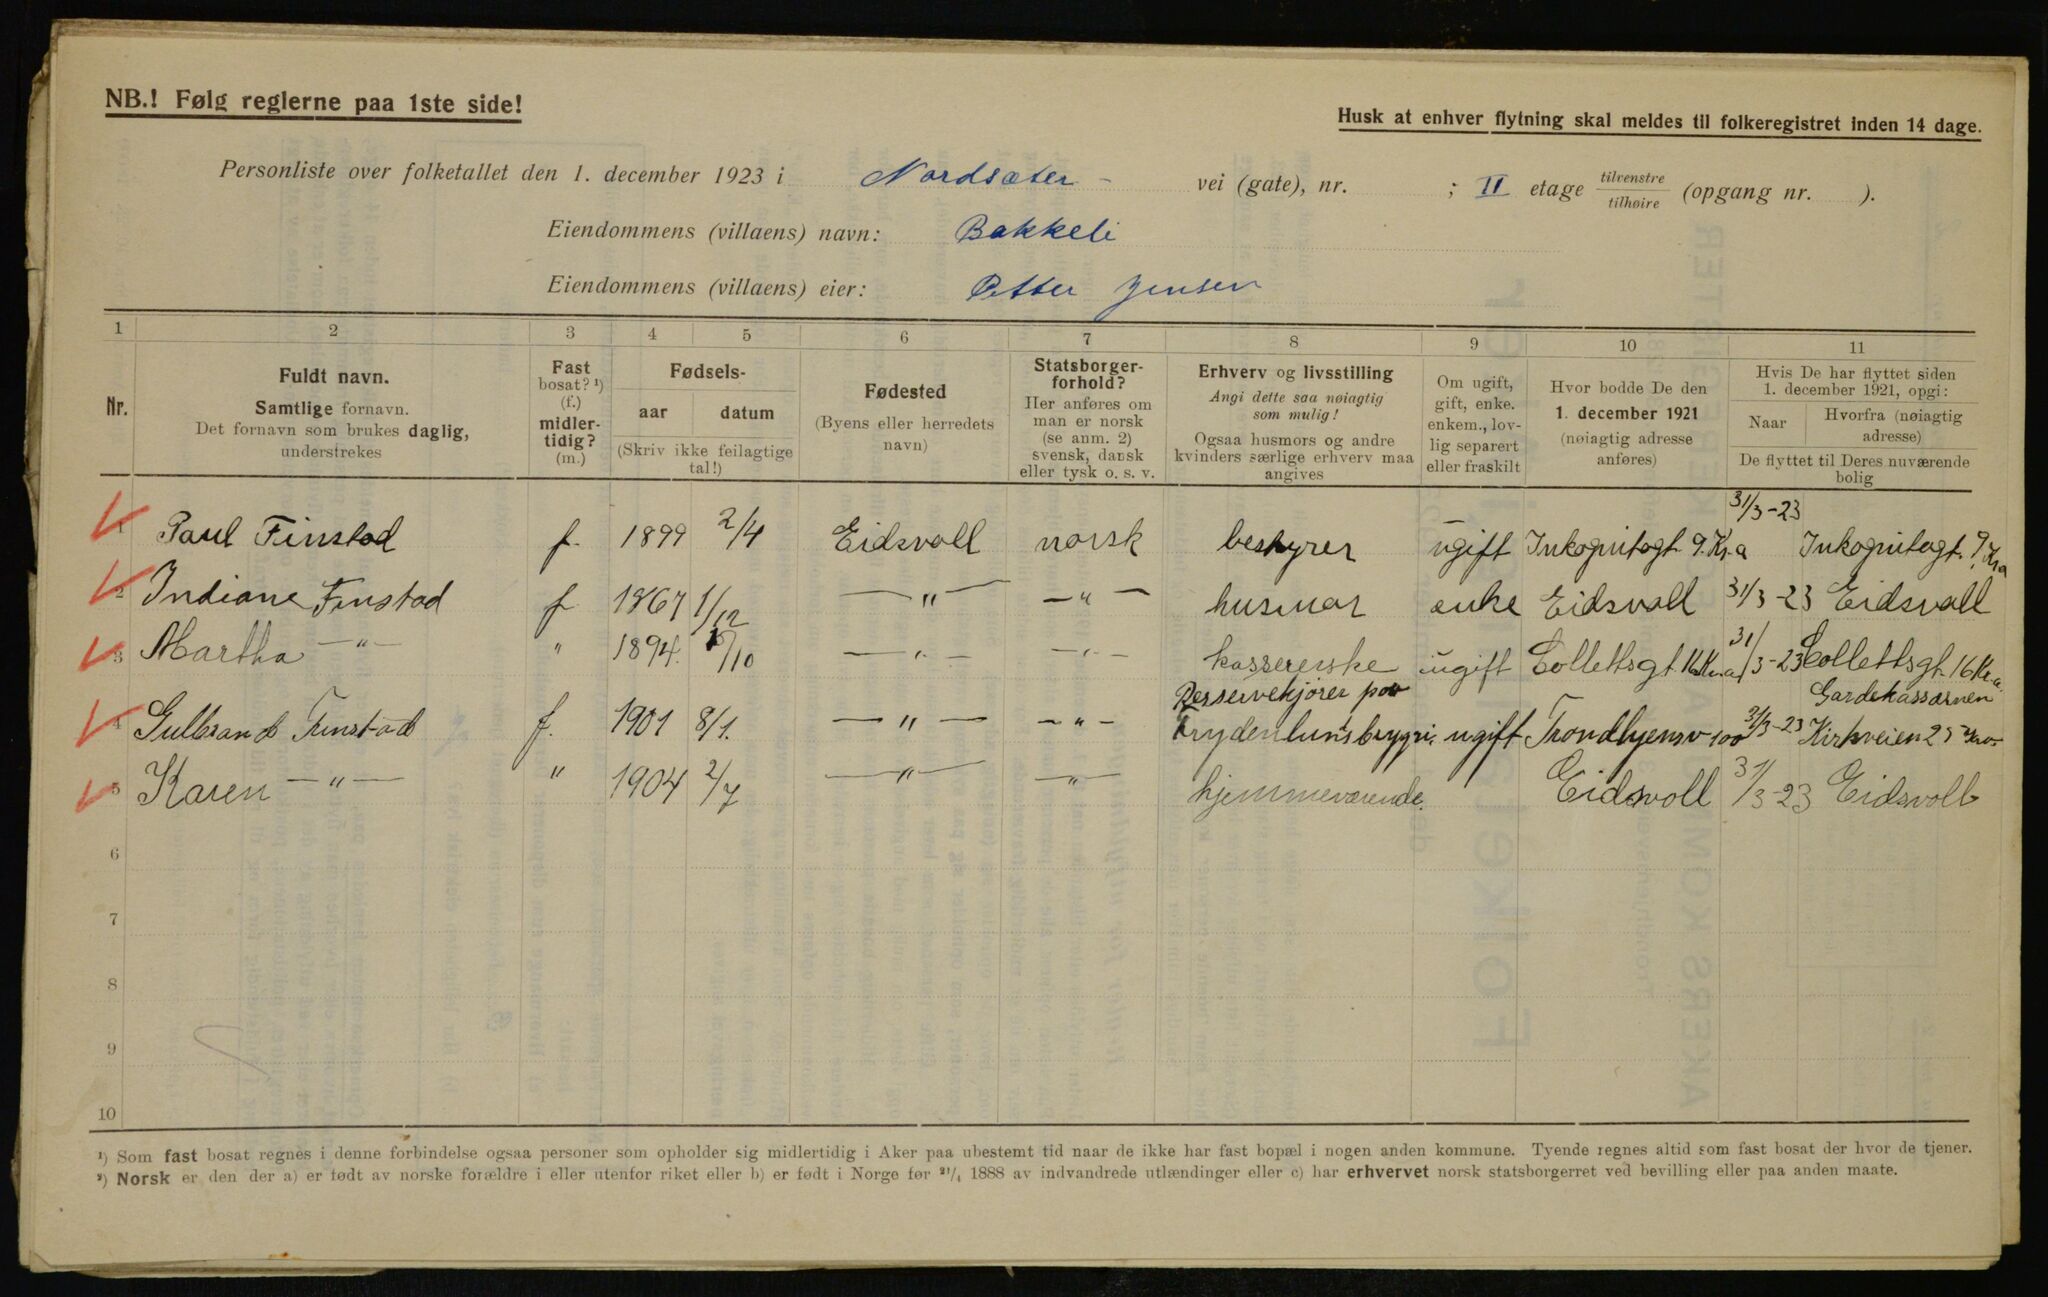 NB.! Følg reglerne paa 1ste side!
Husk at enhver flytning skal meldes til folkeregistret inden 14 dage.
Personliste over folketallet den 1. december 1923 i Nordsæter - vei (gate), nr. ; II etage tilvenstre tilhøire (opgang nr. ).
Eiendommens (villaens) navn: Bakkeli
Eiendommens (villaens) eier: Petter Jensen
1 2 3 4 5 6 7 8 9 10 11
Nr.
Fuldt navn.
Samtlige fornavn.
Det fornavn som brukes daglig,
understrekes
Fast
bosat? ¹)
(f.)
midler-
tidig?
(m.)
Fødsels-
aar datum
(Skriv ikke feilagtige
tal!)
Fødested
(Byens eller herredets
navn)
Statsborger-
forhold?
Her anføres om
man er norsk
(se anm. 2)
svensk, dansk
eller tysk o. s. v.
Erhverv og livsstilling
Angi dette saa nøiagtig
som mulig!
Ogsaa husmors og andre
kvinders særlige erhverv maa
angives
Om ugift,
gift, enke.
enkem., lov-
lig separert
eller fraskilt
Hvor bodde De den
1. december 1921
(nøiagtig adresse
anføres)
Hvis De har flyttet siden
1. december 1921, opgi:
Naar
Hvorfra (nøiagtig
adresse)
De flyttet til Deres nuværende
bolig
1 Paul Finstad f. 1899 2/4 Eidsvoll norsk bestyrer ugift Inkognitogt. 9. Kr.a 31/3-23 Inkognitogt. 9 Kr.a
2 Indiane Finstad f 1867 1/12 — " — — " — husmor enke Eidsvoll 31/3-23 Eidsvoll
3 Martha — " — " 1894. /10 — " — — " — kassererske ugift Collettsgt. 16 Kr.a 31/3-23 Collettsgt. 16 Kr.a.
4 Gulbrand Finstad f. 1901 8/1. — " — — " — Reservekjører paa Frydenlunsbryggri. ugift Trondhjemsv 100 31/3-23 Gardekassærnen Kirkveien 25
5 Karen — " — " 1904 2/7 — " — — " — hjemmeværende. Eidsvoll 31/3-23 Eidsvoll
6
7
8
9
10
¹) Som fast bosat regnes i denne forbindelse ogsaa personer som opholder sig midlertidig i Aker paa ubestemt tid naar de ikke har fast bopæl i nogen anden kommune. Tyende regnes altid som fast bosat der hvor de tjener.
²) Norsk er den der a) er født av norske forældre i eller utenfor riket eller b) er født i Norge før ²¹/₄ 1888 av indvandrede utlændinger eller c) har erhvervet norsk statsborgerret ved bevilling eller paa anden maate.